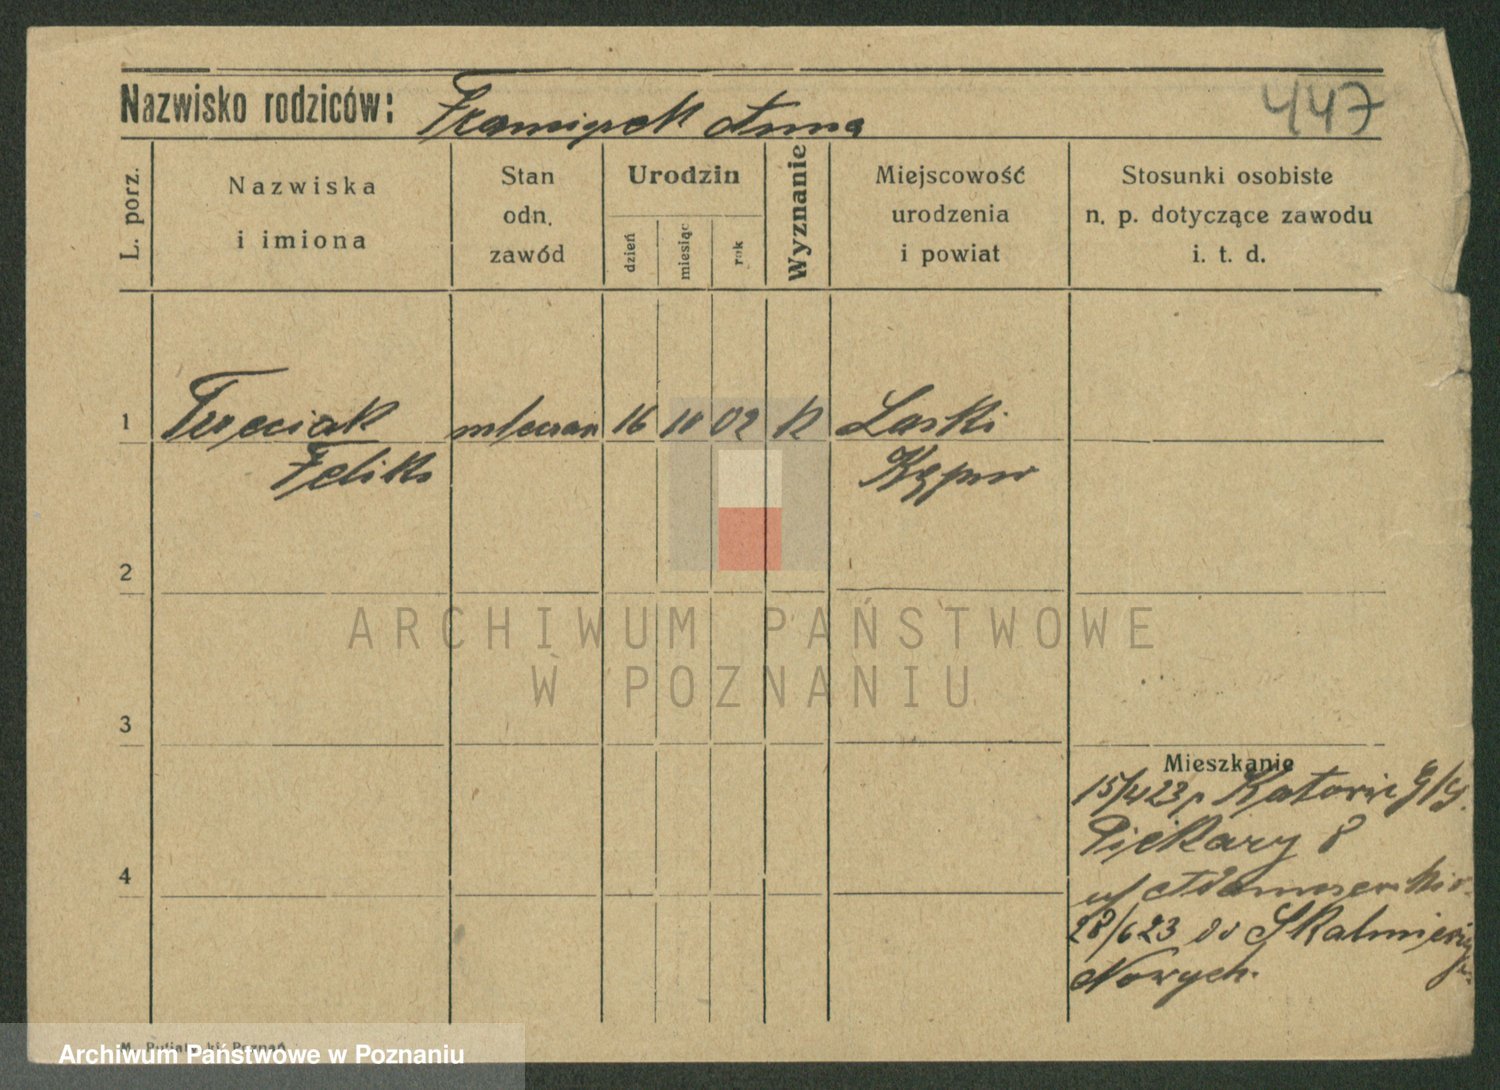 447
Nazwisko rodziców: Franciszek Anna
L. porz.
Nazwiska
i imiona
Stan
odn.
zawód
Urodzin
dzień
miesiąc
rok
Wyznanie
Miejscowość
urodzenia
i powiat
Stosunki osobiste
n. p. dotyczące zawodu
i. t. d.
1
Trzeciak
Feliks
mleczarz
16
02
k
Laski
Kępno
2
3
4
Mieszkanie
15/4 23 p Katowic G/Śl.
Piekary 8
28/6 23 do Skalmierzyc
Nowych.
ARCHIWUM PAŃSTWOWE
W POZNANIU
Archiwum Państwowe w Poznaniu